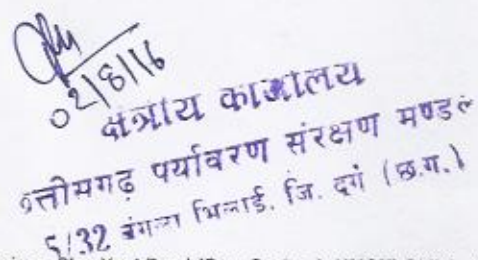 02/8/16
क्षेत्रीय कार्यालय
छत्तीसगढ़ पर्यावरण संरक्षण मण्डल
5/32 बंगला भिलाई, जि. दुर्ग (छ.ग.)